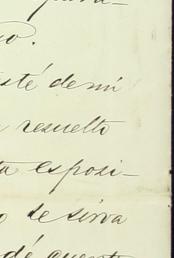 o.
esté de mi
resuelto
ta esposi-
o se sirva
dé cuenta